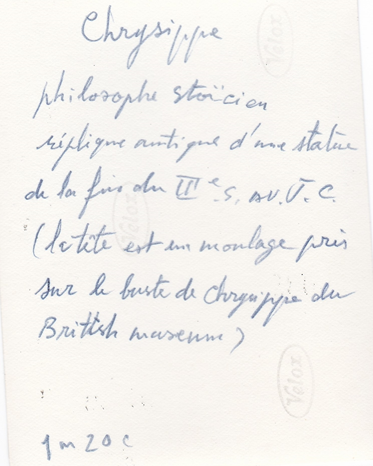 Chrysippe
philosophe stoïcien
réplique antique d'une statue
de la fin du IIIe. S. av. J. C.
(la tête est un moulage pris
sur le buste de Chrysippe du
British museum)
1m20c
Velox
Velox
Velox